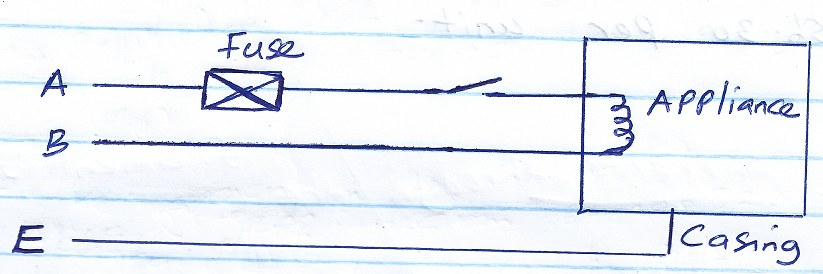 Fuse
A
Appliance
B
E
Casing